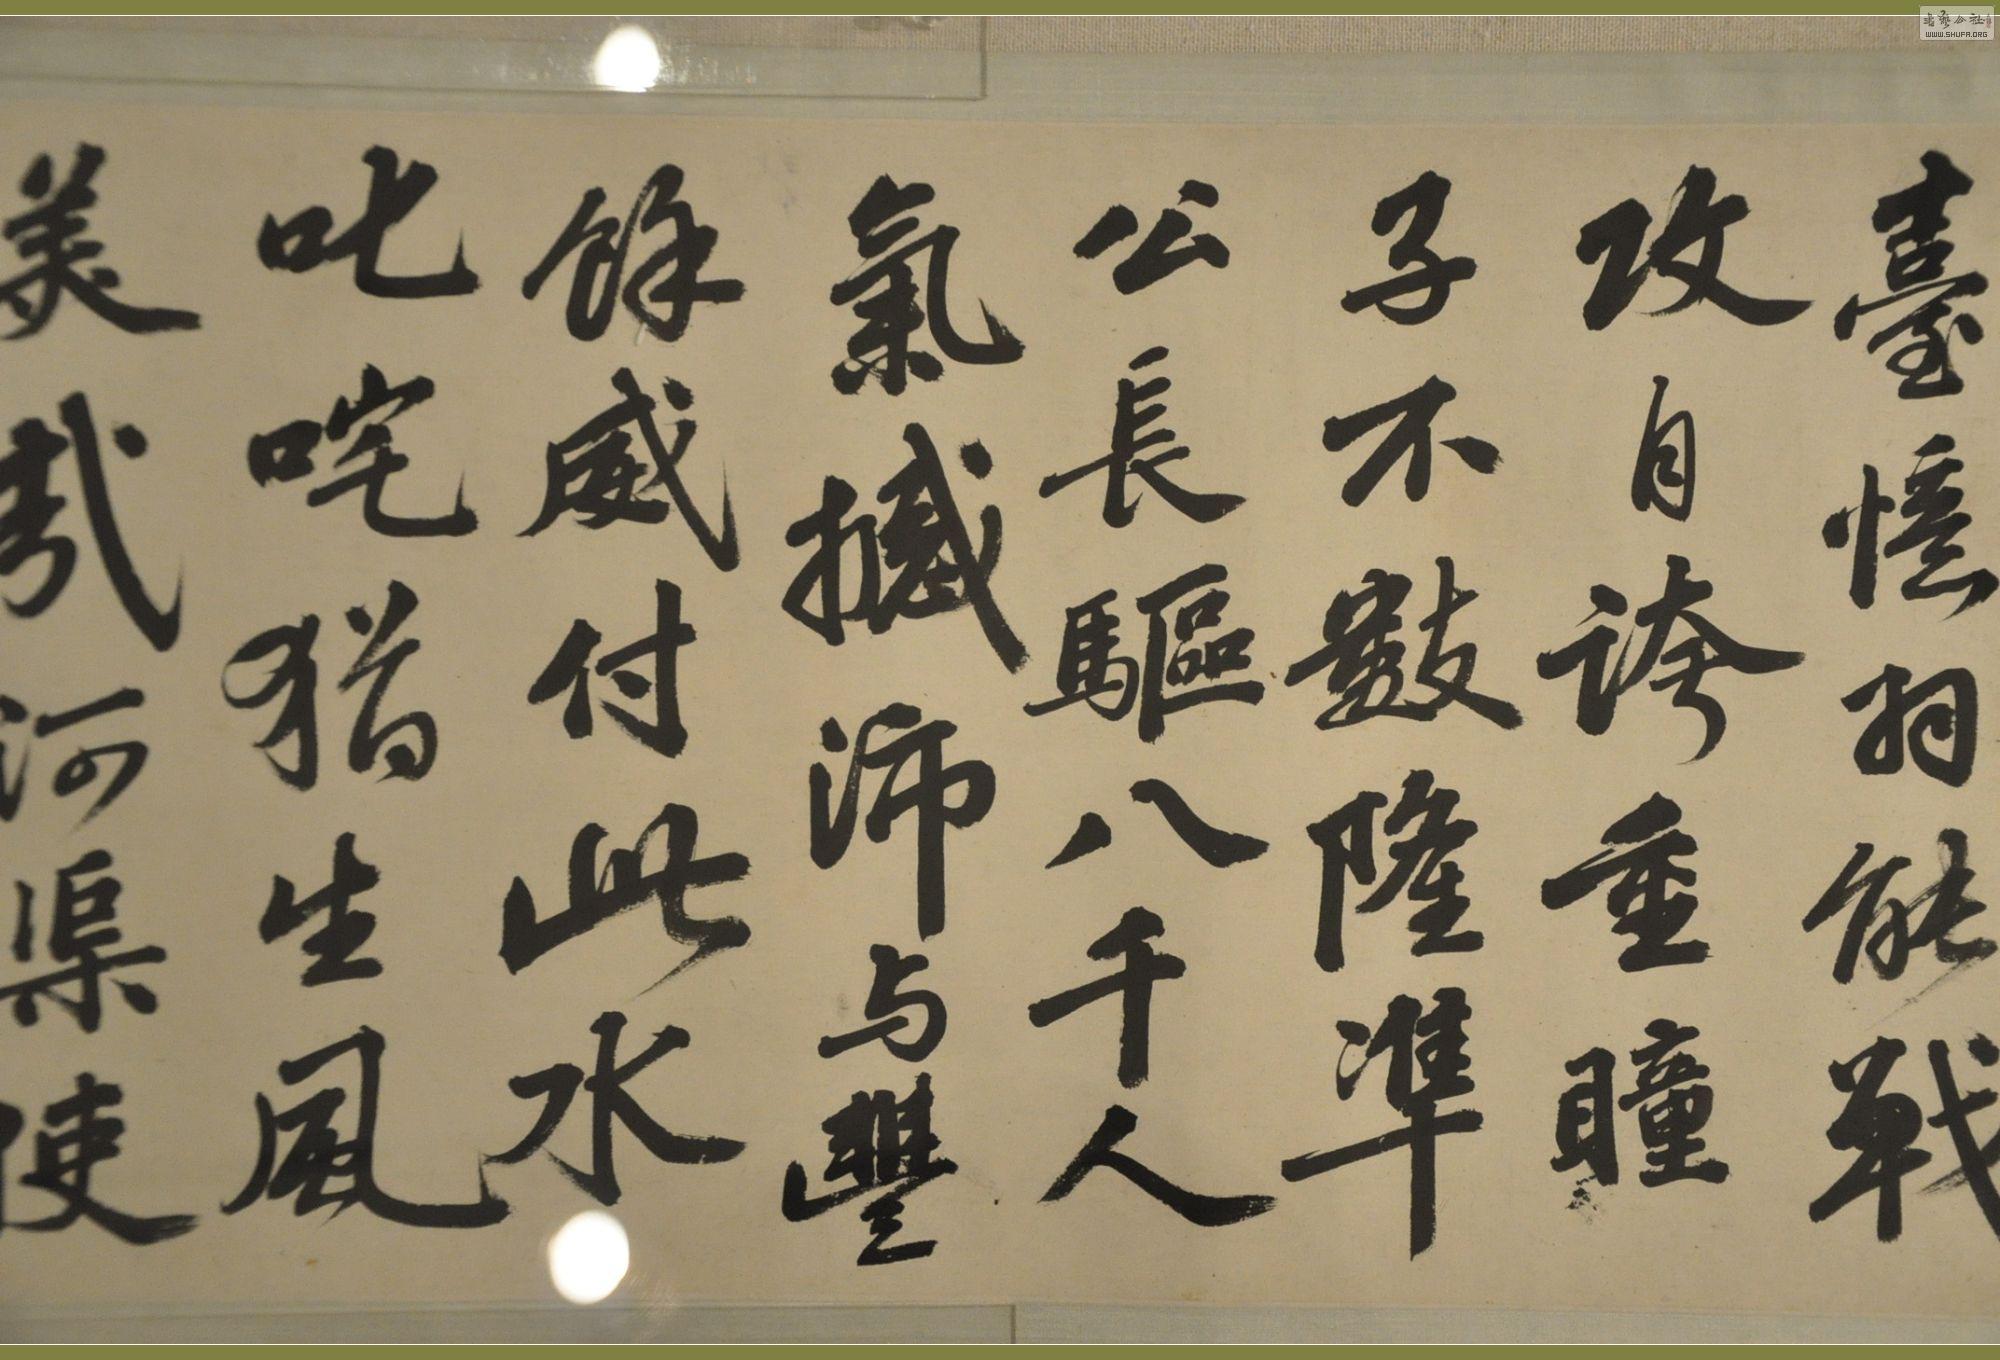 臺憶羽能戰
攻自誇重瞳
子不數隆準
公長驅八千人
氣撼沛与豐
餘威付此水
叱咤猶生風
美哉河渠使
书艺公社
WWW.SHUFA.ORG